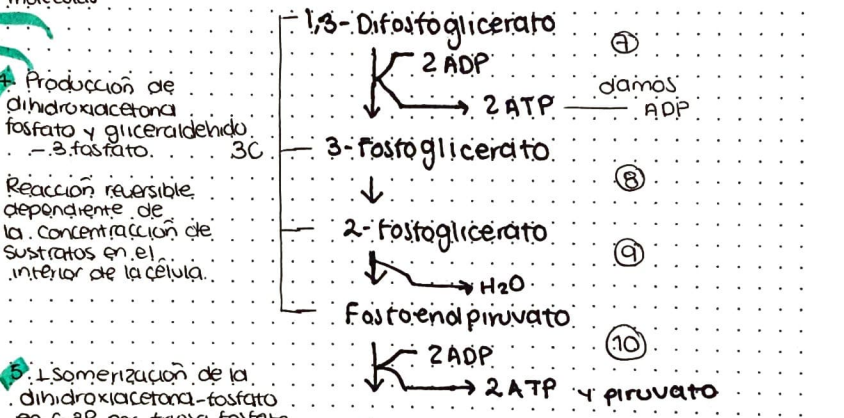 4. Producción de
dihidroxiacetona
fosfato y gliceraldehido
-3 fosfato.
Reacción reversible
dependiente de
la concentracción de
sustratos en el
interior de la célula.
5. Isomerización de la
dihidroxiacetona-fosfato
3C
1,3-Difosfoglicerato
7
2 ADP
2 ATP
damos
ADP
3-fosfoglicerato
8
2-fosfoglicerato
9
H2O
Fosfoenolpiruvato
10
2 ADP
2 ATP y piruvato